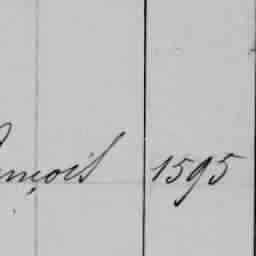 nçois 1595